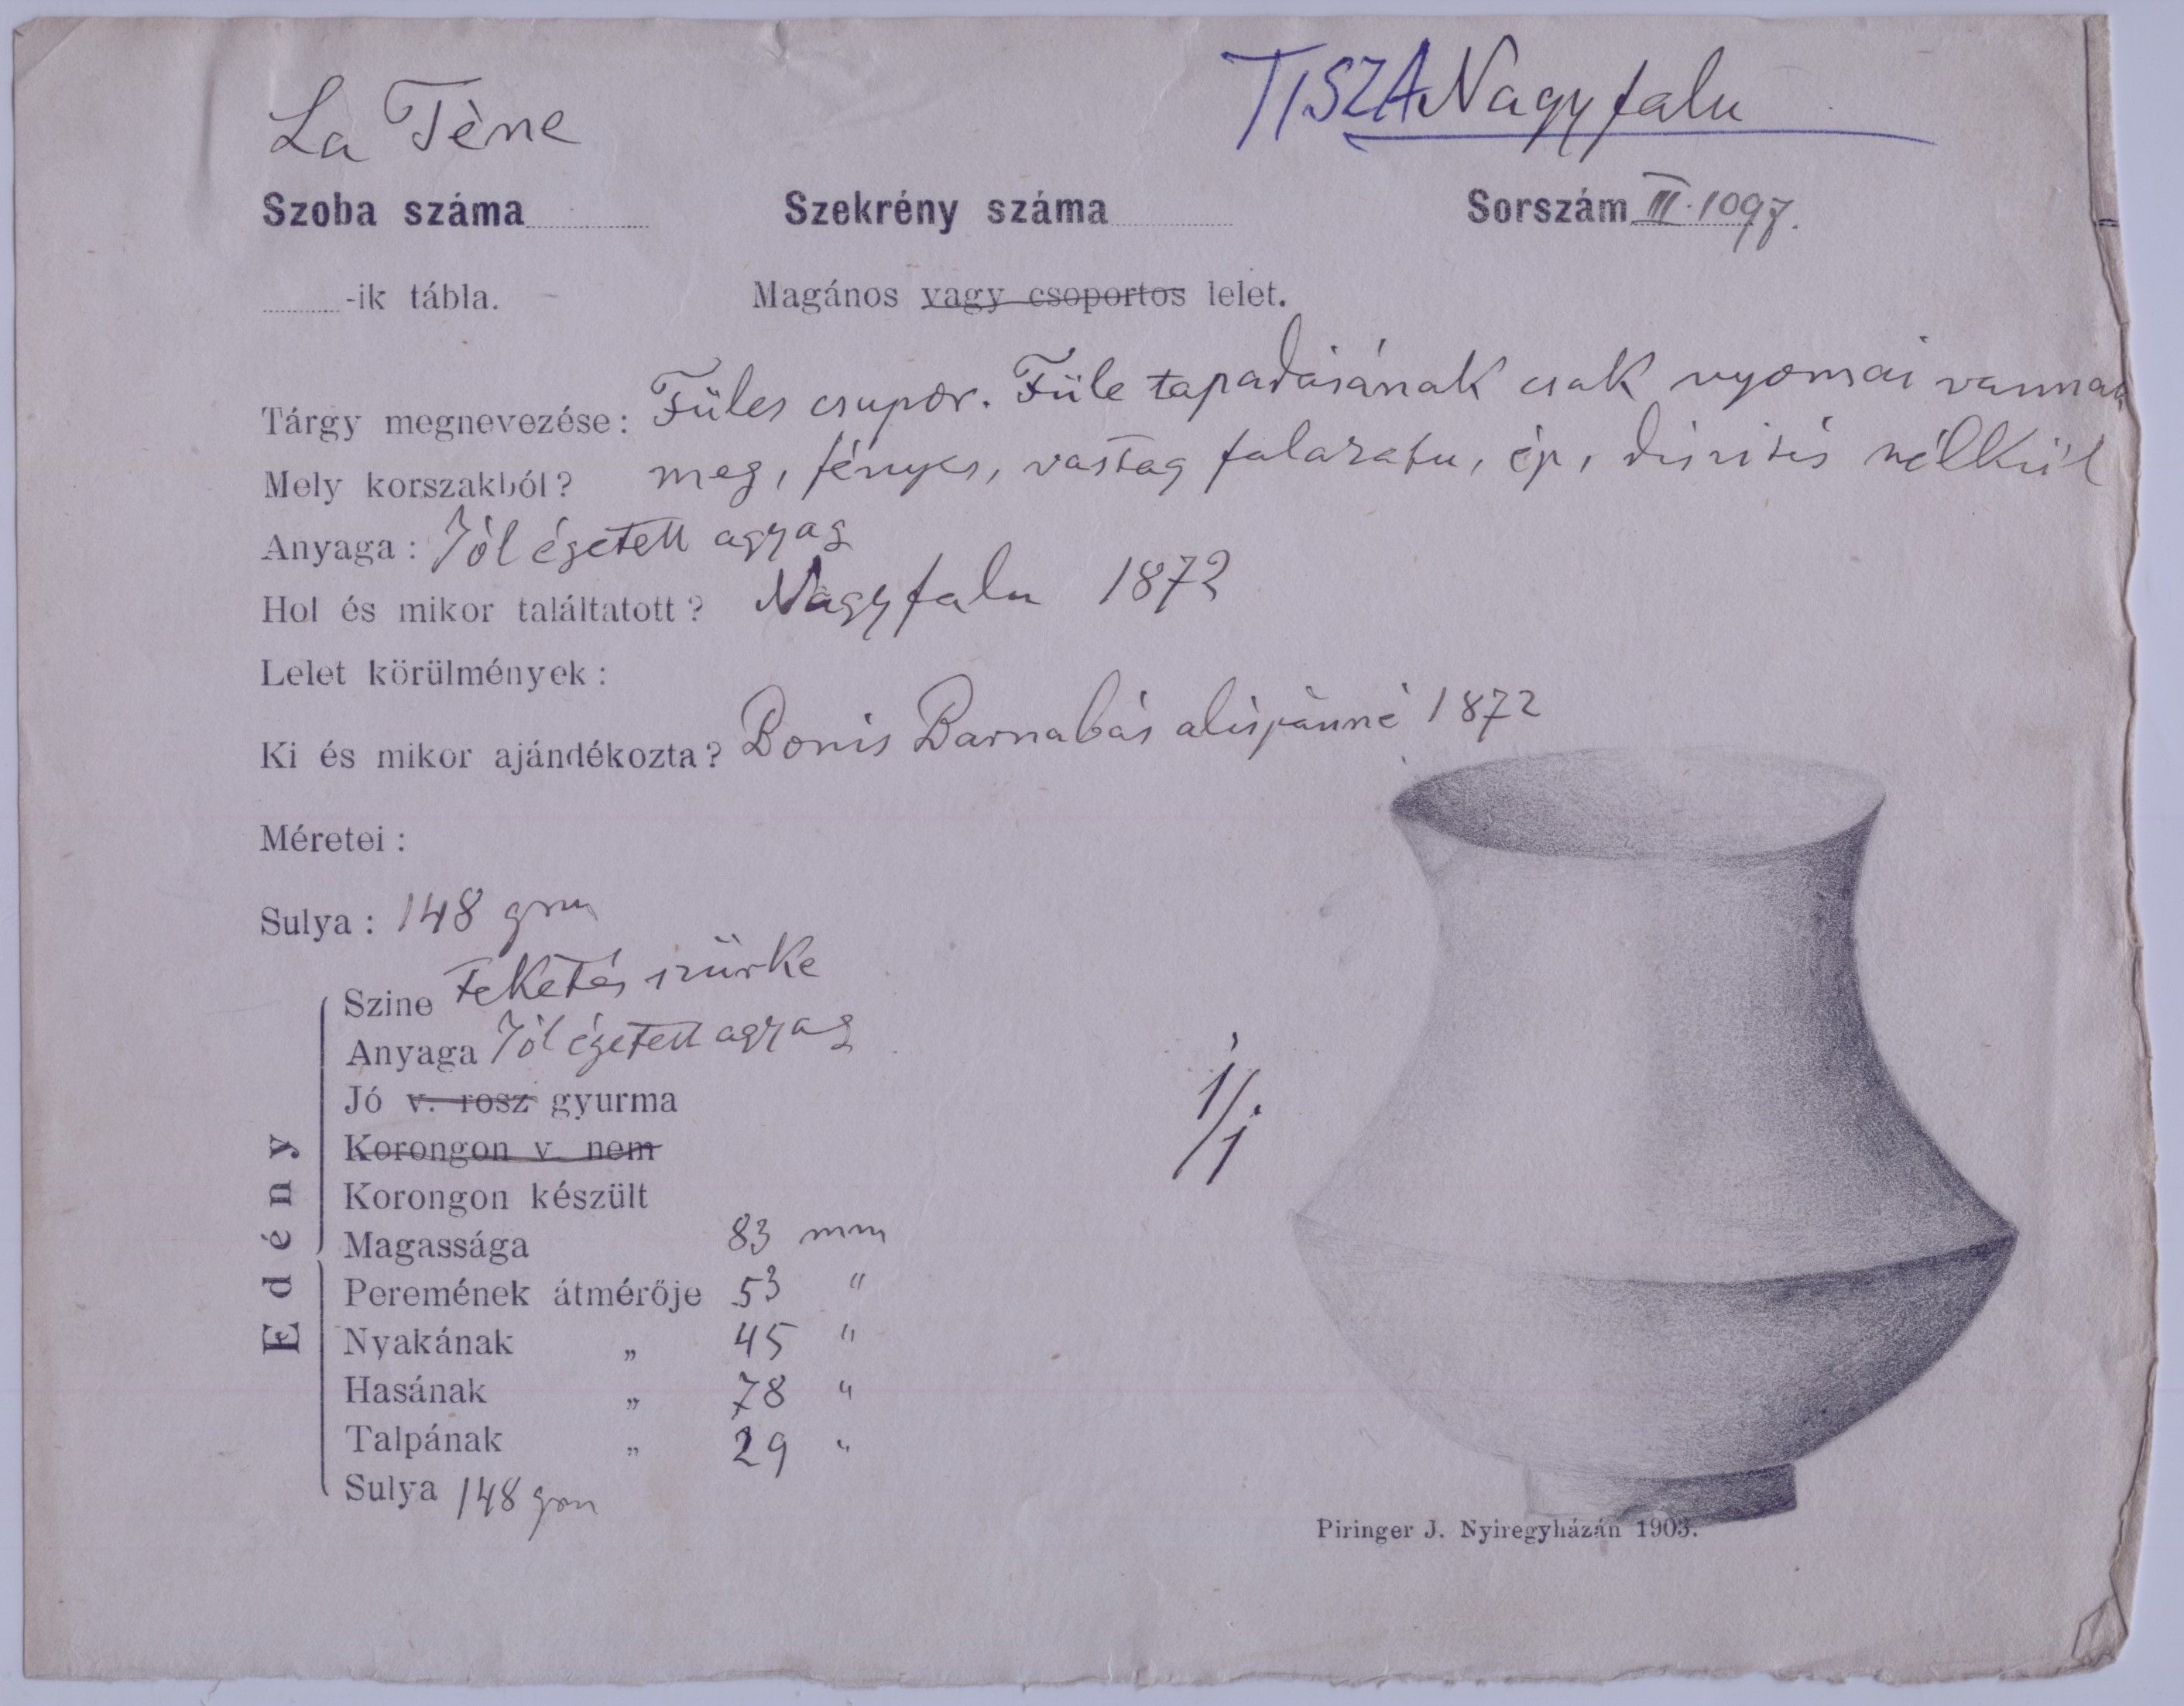 La Tène
TISZANagyfalu
Szoba száma
Szekrény száma
Sorszám III. 1097.
-ik tábla.
Magános vagy csoportos lelet.
Tárgy megnevezése: Füles csupor. Füle tapadásának csak nyomai vannak
meg, fényes, vastag falazatu, ép, diszités nélkül
Mely korszakból?
Anyaga: Jól égetett agyag
Hol és mikor találtatott? Nagyfalu 1872
Lelet körülmények:
Ki és mikor ajándékozta? Bonis Barnabás alispánné 1872
Méretei:
Sulya: 148 grm
Edény
Szine Feketés szürke
Anyaga Jól égetett agyag
Jó v. rosz gyurma
Korongon v. nem
Korongon készült
Magassága 83 mm
Peremének átmérője 53 "
Nyakának „ 45 "
Hasának „ 78 "
Talpának „ 29 "
Sulya 148 grm
1/1
Piringer J. Nyiregyházán 1903.